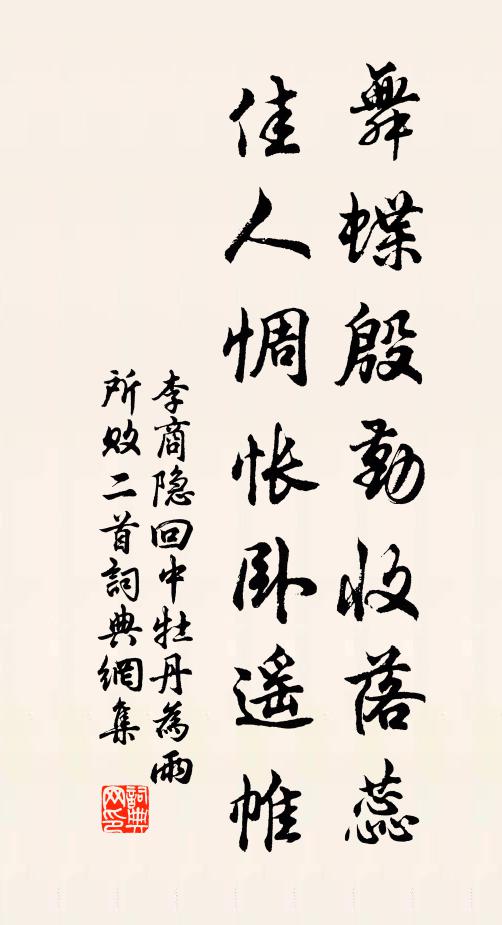 舞蝶殷勤收落蕊
佳人惆怅卧遥帷
李商隐回中牡丹為雨
所败二首詞典網集
詞典
网印